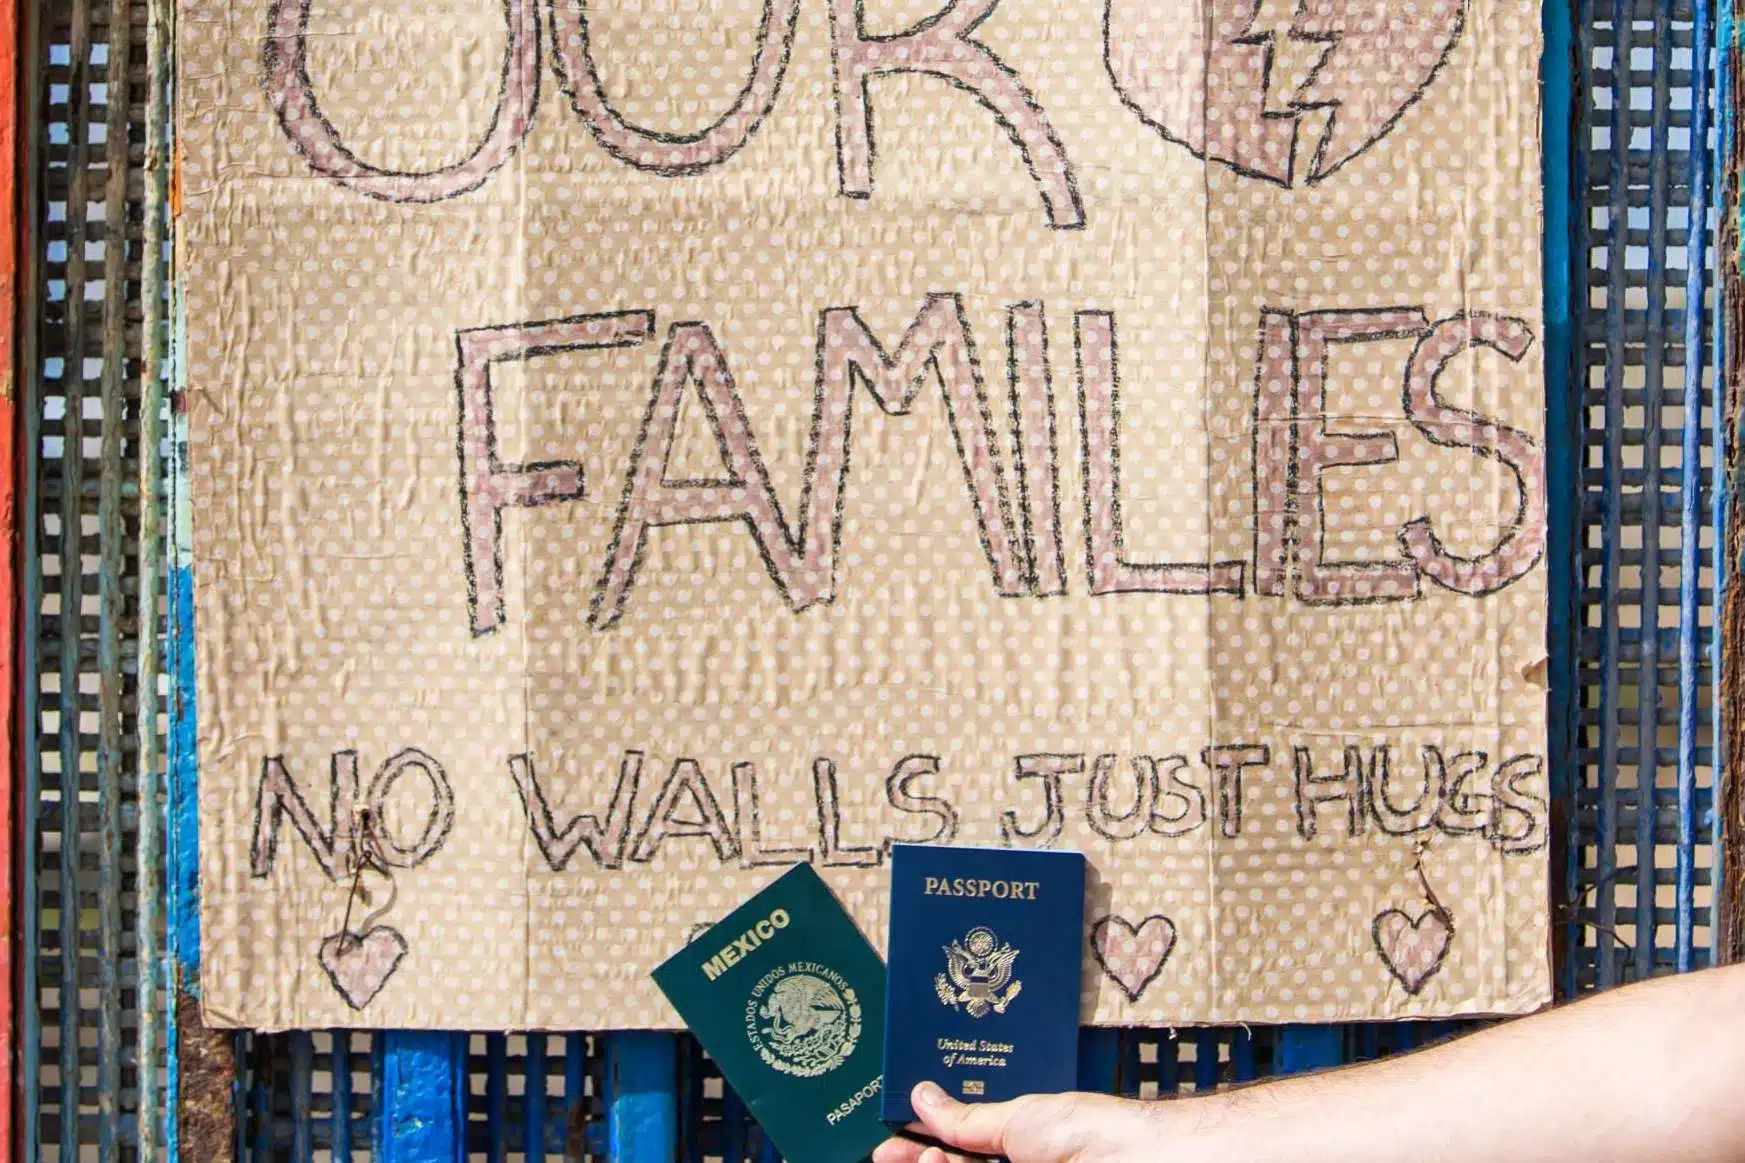 OUR
FAMILIES
NO WALLS JUST HUGS
MEXICO
ESTADOS UNIDOS MEXICANOS
PASAPORT
PASSPORT
United States
of America